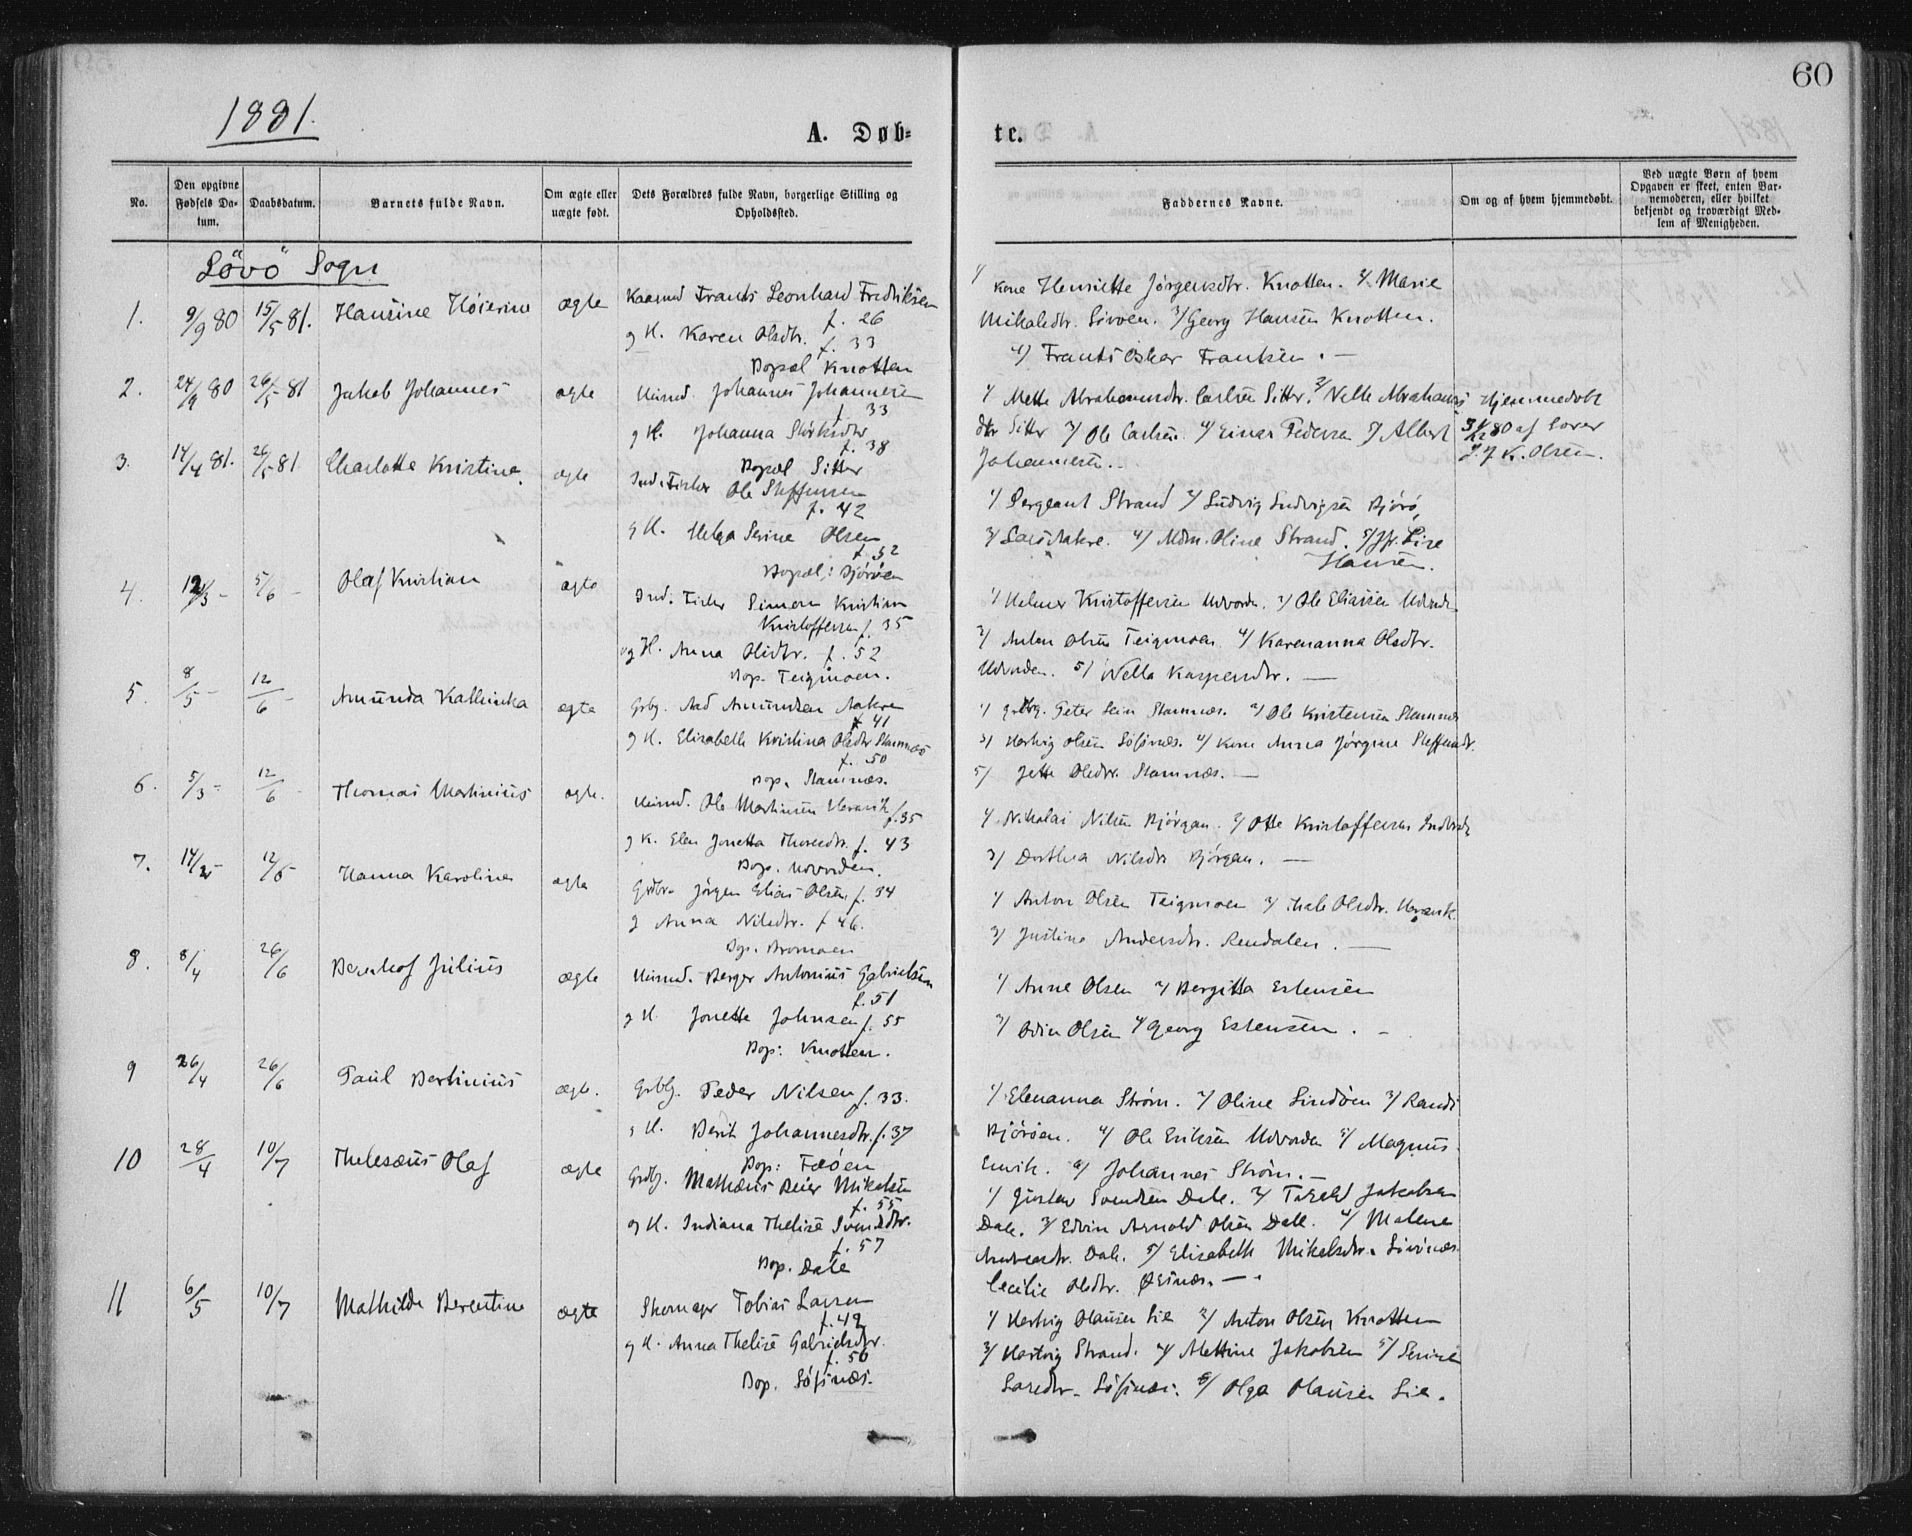 60
1881.
A. Døb-
te.
No.
Den opgivne Fødsels Da-tum.
Daabsdatum.
Barnets fulde Navn.
Om ægte eller uægte født.
Dets Forældres fulde Navn, borgerlige Stilling og Opholdssted.
Faddernes Navne.
Om og af hvem hjemmedøbt.
Ved uægte Børn af hvem Opgaven er skeet, enten Bar-nemoderen, eller hvilket bekjendt og troværdigt Med-lem af Menigheden.
Lövö Sogn
1. 9/9 80 15/5 81. Hansine Høierine ægte
Frants Leonhard Fredriksen
f. 26
g H. Karen Olsdtr. f. 33
Bopæl Knotten
1/ Kone Henriette Jørgensdtr. Knotten. 2/ Marie
Mikalsdtr. 3/ Georg Hansen Knotten.
4/ Frants Oskar Frantsen. —
2. 24/9 80 26/5 81 Jakob Johannes ægte
Huusmd. Johannes Johannesen
f. 33
g H. Johanna
f. 38
Bopæl Sitter
1/ Mette Abrahamsdtr. Carlsen Sitter. 2/ Nelle Abrahams
dtr Sitter 3/ Ole Carlsen 4/ Einar Pedersen 5/ Albert
Johannesen.
Hjemmedøbt
80 af
J. K. Olsen.
3. 14/4 81. 26/5 81 Charlotte Kristine. ægte
Ind. Fisker Ole Steffensen
f. 42
g H. Helga Serine Olsen
f. 52
Bopæl: Björöen
1/ Sergeant Strand 2/ Ludvig Ludvigsen Bjørö,
3/ Aakre. 4/ Mdm. Oline Strand. 5/ Jfr. Lise
Hansen.
4. 5/6 – Olaf Kristian ægte
Ind. Fisker Simon Kristian
Kristoffersen f. 35
og H. Anna Olsdtr. f. 52
Bop. Teigmoen.
1/ Helmer Kristoffersen Udvorden. 2/ Ole Eliassen
3/ Anton Olsen Teigmoen 4/ Karenanna Olsdtr.
Udvorden. 5/ Nella Kaspersdtr. —
5. 8/5 – 12/6 – Amunda Kathinka ægte
Grbg. Aad Amundsen Aakre
f. 41
g H. Elisabeth Kristina Olsdtr Stamnæs
f. 50
Bop. Stamnæs.
1/ Peter Stamnæs. 2/ Ole Kristensen Stamnæs
3/ Hertvig Olsen 4/ Kone Anna Jörgine Steffensdtr.
5/ Jette Olsdtr. Stamnæs. —
6. 5/3 – 12/6 – Thomas Martinius ægte.
Huusmd. Ole Martinsen f. 35
g K. Elen Jonetta Thoresdtr. f. 43
Bop. Udvorden.
1/ Nikolai Nilsen Bjørgan. 2/ Otte Kristoffersen
3/ Dorthea Nilsdtr Bjørgan. —
7. 12/6 – Hanna Karoline ægte
Grdbr. Jörgen Elias Olsen f. 34
g Anna Nilsdtr. f 46.
Bop.
1/ Anton Olsen Teigmoen 2/ Olsdtr.
3/ Justine Andersdtr. Rendalen. —
8. 8/4 26/6 Bernhof Julius ægte
Huusmd. Berger Antonius Gabrielsen
f. 51
g H. Jonette Johnsen f. 55
Bop: Knotten.
1/ Anne Olsen 2/ Bergitta Estensen
3/ Odin Olsen 4/ Georg Estensen. –
9 26/4 26/6 Paul Bertinius ægte.
Grbg. Peder Nilsen f. 33.
g H. Berit Johannesdtr. f. 37
Bop: Faöen
1/ Elenanna Strøm. 2/ Oline Lindöen 3/ Randi
Björöen. 4/ Ole Eriksen Udvorden 5/ Magnus
6/ Johannes Strøm. —
10 28/4 10/7 Thelesæus Olaf ægte
Grdbg. Mathæus Beier Mikalsen
f. 55
og H. Indiana Thelise Svendsdtr.
f. 57
Bop. Dale
1/ Gustav Svendsen Dale. 2/ Jakobsen
Dale. 3/ Edvin Arnold Olsen Dale. 4/ Malene
Andreasdtr. Dale. 5/ Elisabeth Mikalsdtr.
Cecilie Olsdtr. —
11 6/5 10/7 Mathilde Berentine ægte
Skomager Tobias Larsen
f. 49
g H. Anna Thelise Gabrielsdtr.
f. 56
Bop. Söfsnæs.
1/ Hertvig Olausen Lie 2/ Anton Olsen Knotten
3/ Hartvig Strand. 4/ Mettine Jakobsen 5/ Serine
Larsdtr. Söfsnæs. 6/ Olga Olausen Lie.